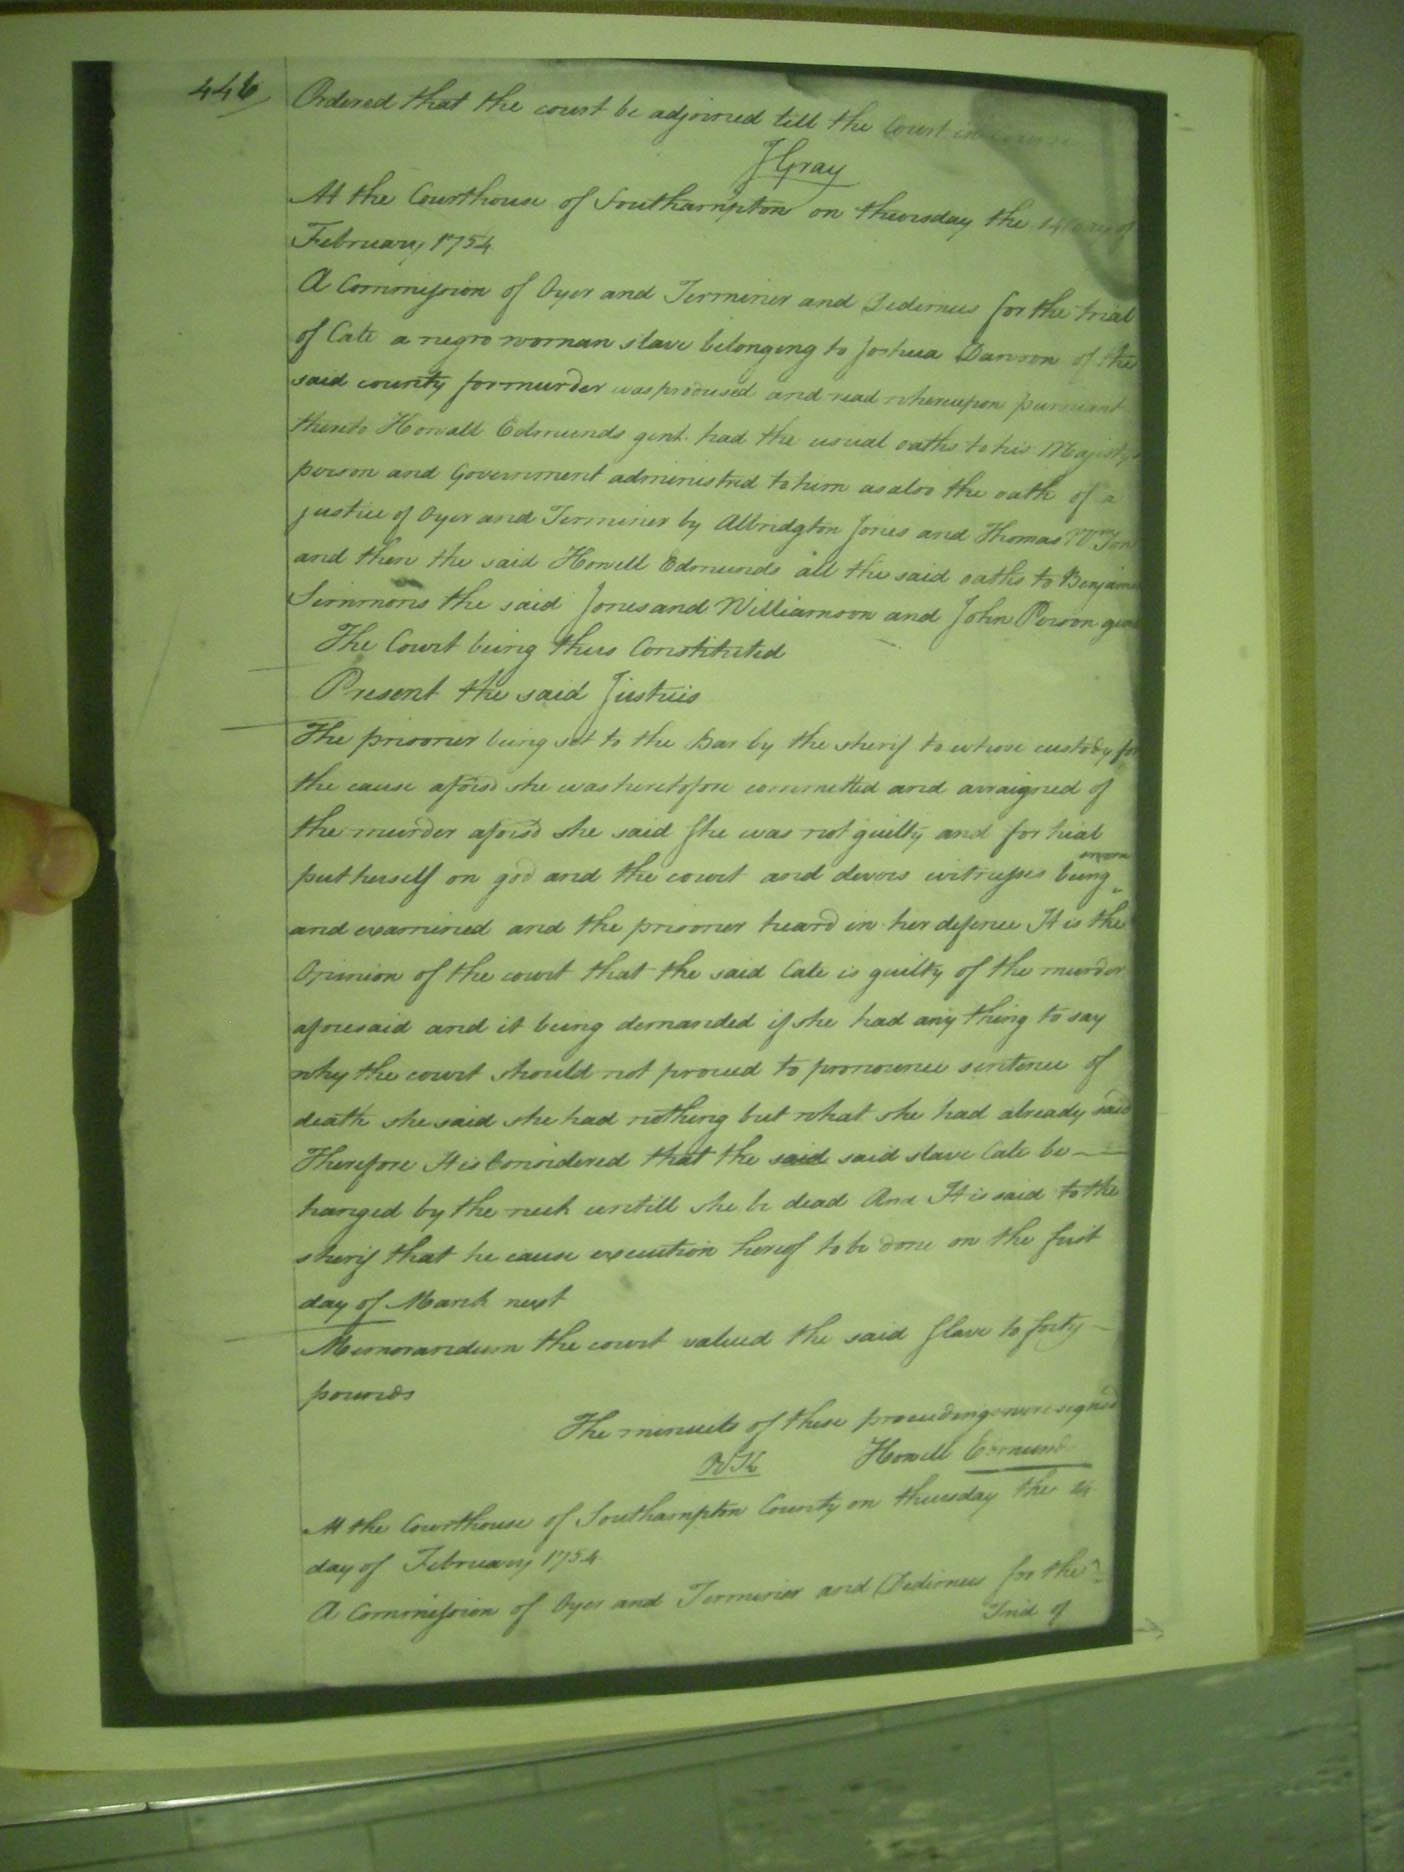 446
Ordered that the court be adjoirned till the Court in
J Gray
At the Courthouse of Southampton on thursday the 14 day of
February 1754
A Commission of Oyer and Terminer and Dedimus for the trial
of Cate a negro woman slave belonging to Joshua Dawson of the
said county for murder was prodused and read whereupon pursuant
thereto Howell Edmunds gent. had the usual oaths to his Majestys
person and Government administred to him as also the oath of a
justice of Oyer and Terminer by Albridgton Jones and Thomas Wmson
and then the said Howell Edmunds all the said oaths to Benjamin
Simmons the said Jones and Williamson and John Person gent
The Court being thus Constituted
Present the said Justices
The prisoner being set to the Bar by the sherif to whose custody for
the cause aforsd she was heretofore committed and arraigned of
the murder aforsd she said she was not guilty and for trial
put herself on god and the court and divers witnesses being
sworn
and examined and the prisoner heard in her defence It is the
Opinion of the court that the said Cate is guilty of the murder
aforesaid and it being demanded if she had any thing to say
why the court should not proceed to pronounce sentence of
death she said she had nothing but what she had already said
Therefore It is Considered that the said said slave Cate be
hanged by the neck untill she be dead And It is said to the
sherif that he cause execution hereof to be done on the first
day of March next
Memorandum the court valued the said slave to forty
pounds
The minuets of these proceedings were signed
Howell Edmunds
At the Courthouse of Southampton County on thursday the 14
day of February 1754
A Commission of Oyer and Terminer and Dedimus for the
Trial of